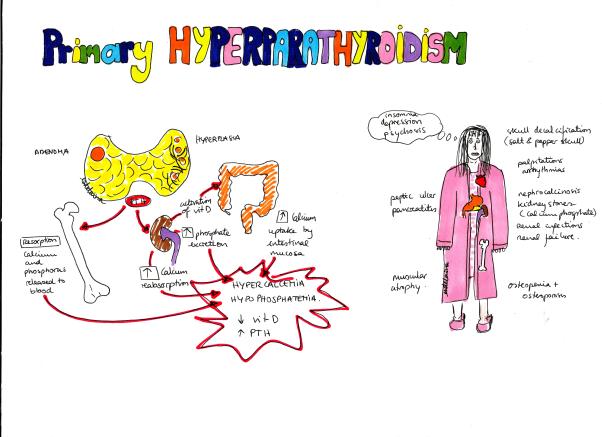 Primary HYPERPARATHYROIDISM
ADENOMA
HYPERPLASIA
activation
of vit D
↑ phosphate
excretion
↑ Calcium
uptake by
intestinal
mucosa
Resorption
Calcium
and
phosphorus
released to
blood
↑ Calcium
reabsorption
HYPERCALCEMIA
HYPOPHOSPHATEMIA.
↓ vit D
↑ PTH
insomnia
depression
psychosis
skull decalcification
(salt & pepper skull)
palpitations
arrhythmias
peptic ulcer
pancreatitis
nephrocalcinosis
kidney stones
(calcium phosphate)
renal infections
renal failure.
muscular
atrophy.
osteopenia +
osteoporosis